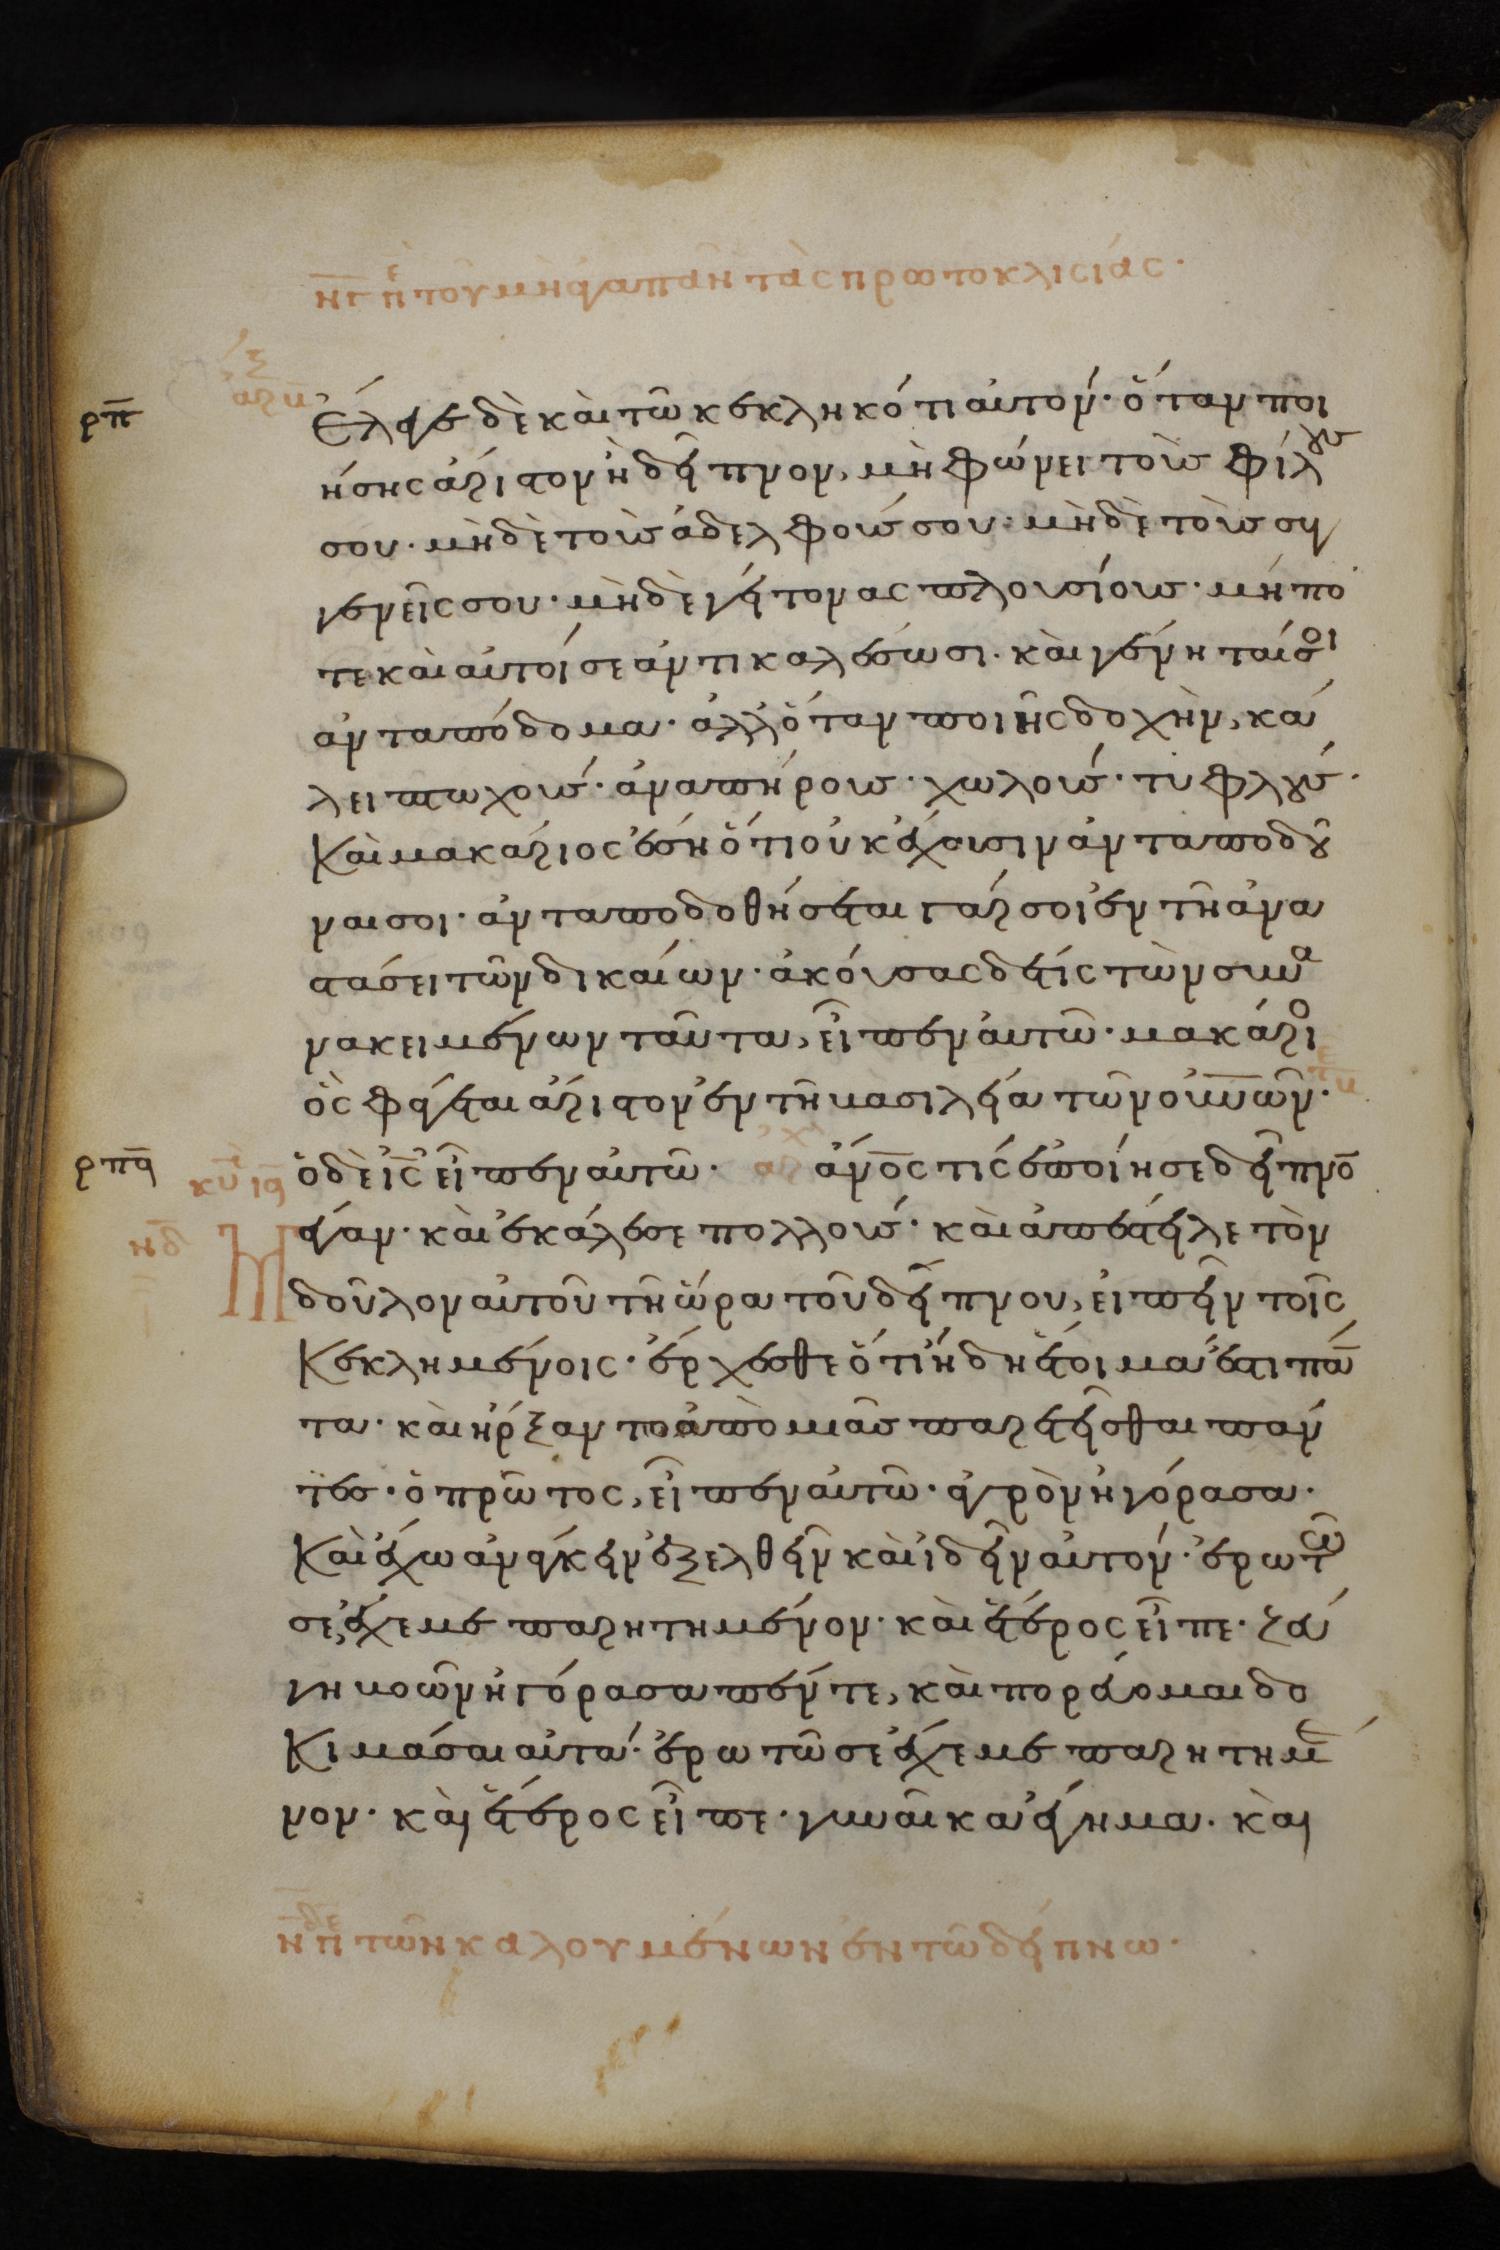 νγ πε τοῦ μὴ ἀγαπᾶν τὰς πρωτοκλισίας·
ρπ Ἔλεγε δὲ καὶ τῶ κεκληκότι αὐτόν· ὅταν ποι
ήσης ἄριστον ἢ δεῖπνον, μὴ φώνει τοὺς φίλους
σου· μὴ δὲ τοὺς ἀδελφούς σου· μὴ δὲ τοὺς συ
γγενεῖς σου· μὴ δὲ γείτονας πλουσίους· μήπο
τε καὶ αὐτοί σε ἀντικαλέσωσι· καὶ γένηταί σοι
ἀνταπόδομα· ἀλλ ὅταν ποιῆς δοχὴν, κά
λει πτωχούς· ἀναπήρους· χωλούς· τυφλούς·
Καὶ μακάριος ἔση ὅτι οὐκ ἔχουσιν ἀνταποδοῦ
ναι σοι· ἀνταποδοθήσεται γάρ σοι ἐν τῆ ἀνα
στάσει τῶν δικαίων· ἀκούσας δέ τίς τῶν συνα
νακειμένων ταῦτα, εἶπεν αὐτῶ· μακάριος
ὃς φάγεται ἄριστον ἐν τῆ βασιλεία τῶν οὐνῶν·
ρπα ὁ δὲ ις εἶπεν αὐτῶ· ἀνος τίς ἐποίησε δεῖπνο
νδ μέγαν· καὶ ἐκάλεσε πολλούς· καὶ ἀπέστειλε τὸν
δοῦλον αὐτοῦ τῆ ὥρα τοῦ δείπνου, εἰπεῖν τοῖς
Κεκλημένοις· ἔρχεσθε ὅτι ἤδη ἕτοιμά ἐστι πάν
τα· καὶ ἤρξαντο ἀπὸ μιᾶς παραιτεῖσθαι πάν
τες· ὁ πρῶτος, εἶπεν αὐτῶ· ἀγρὸν ἠγόρασα·
Καὶ ἔχω ἀνάγκην ἐξελθεῖν καὶ ἰδεῖν αὐτόν· ἐρωτῶ
σε, ἔχε με παρητημένον· καὶ ἕτερος εἶπε· ζεύ
γη βοῶν ἠγόρασα πέντε, καὶ πορεύομαι δο
Κιμάσαι αὐτά· ἐρωτῶ σε ἔχε με παρητημέ
νον· καὶ ἕτερος εἶπε· γυναῖκα ἔγημα· καὶ
νδ πε τῶν καλουμένων ἐν τῶ δείπνω·